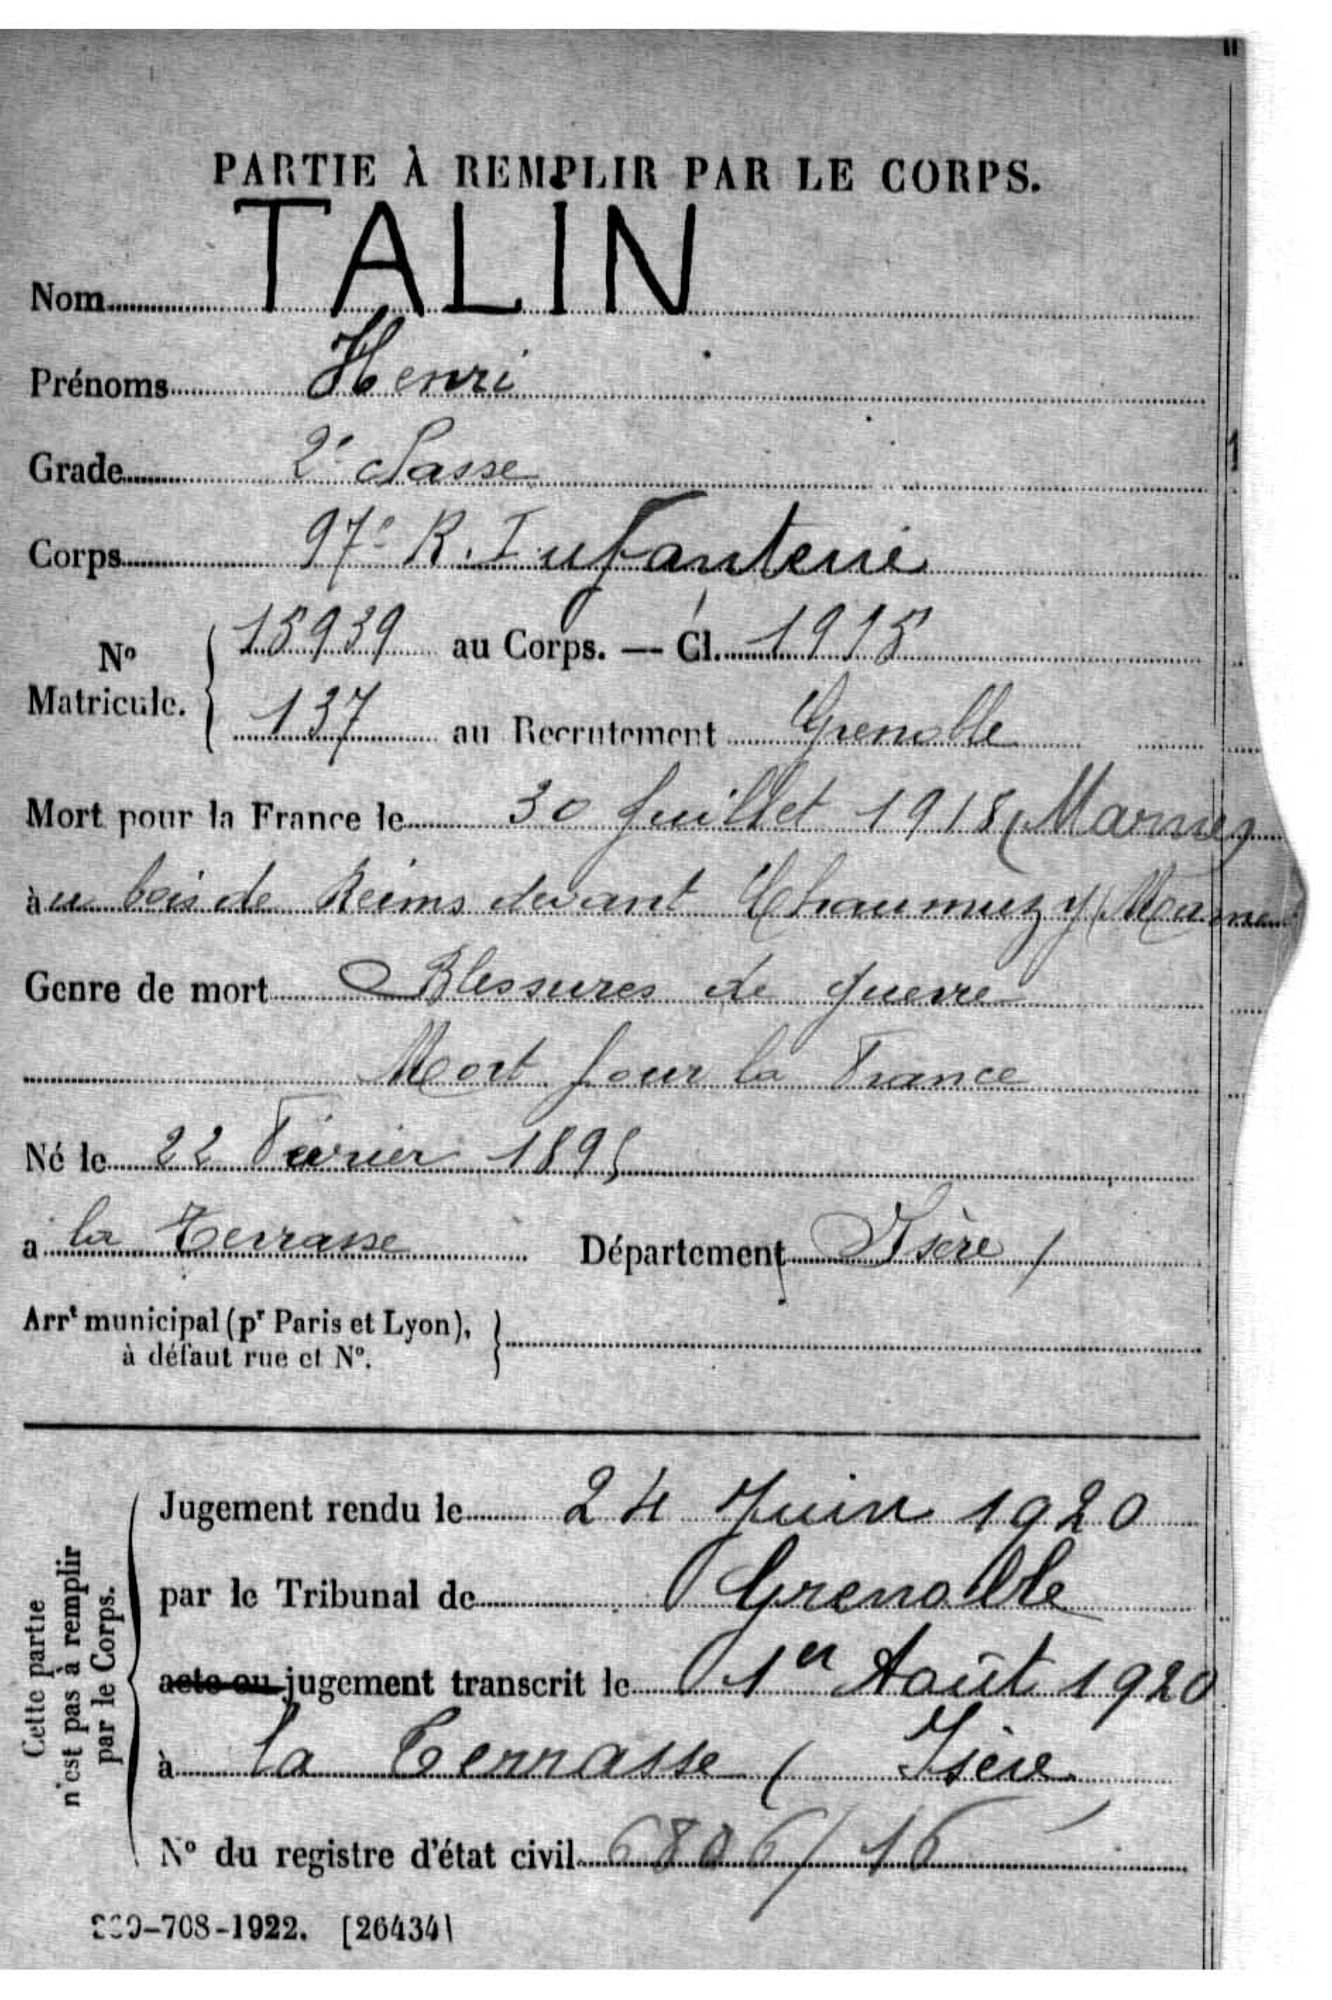 PARTIE À REMPLIR PAR LE CORPS.
Nom TALIN
Prénoms Henri
Grade 2e classe
Corps 97e R. Infanterie
No Matricule. 15939 au Corps. — Cl. 1915
137 au Recrutement Grenoble
Mort pour la France le 30 Juillet 1918 (Marne)
au bois de Reims devant Chaumuzy (Marne
Genre de mort Blessures de guerre
Mort pour la France
Né le 22 Février 1895
a la Terrasse Département Isère /
Arrt municipal (pr Paris et Lyon),
à défaut rue et No.
Cette partie n'est pas à remplir par le Corps.
Jugement rendu le 24 Juin 1920
par le Tribunal de Grenoble
acte ou jugement transcrit le 1er Août 1920
à la Terrasse ( Isère
No du registre d'état civil 6806/16
-708-1922. [26434]